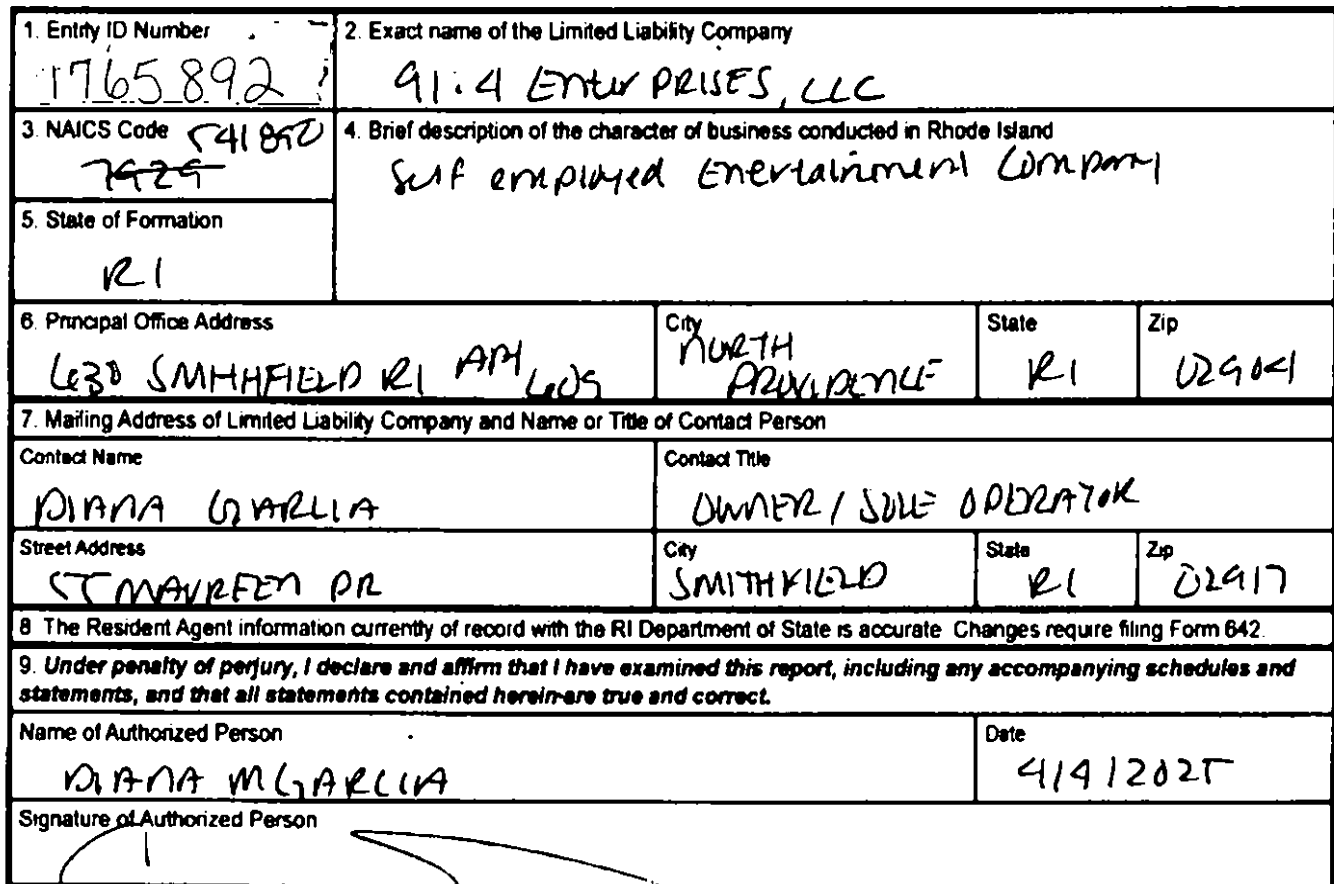 1. Entity ID Number
1765892
2. Exact name of the Limited Liability Company
91.4 Enter PRISES, LLC
3. NAICS Code 541890
7929
4. Brief description of the character of business conducted in Rhode Island
Self employed Enertainment Company
5. State of Formation
RI
6. Principal Office Address
630 SMITHFIELD RD APT 609
City
NORTH PROVIDENCE
State
RI
Zip
02904
7. Mailing Address of Limited Liability Company and Name or Title of Contact Person
Contact Name
DIANA GARCIA
Contact Title
OWNER / SOLE OPERATOR
Street Address
MAUREEN DR
City
SMITHFIELD
State
RI
Zip
02917
8 The Resident Agent information currently of record with the RI Department of State is accurate Changes require filing Form 642.
9. Under penalty of perjury, I declare and affirm that I have examined this report, including any accompanying schedules and
statements, and that all statements contained herein are true and correct.
Name of Authorized Person
DIANA M GARCIA
Date
4/4/2025
Signature of Authorized Person